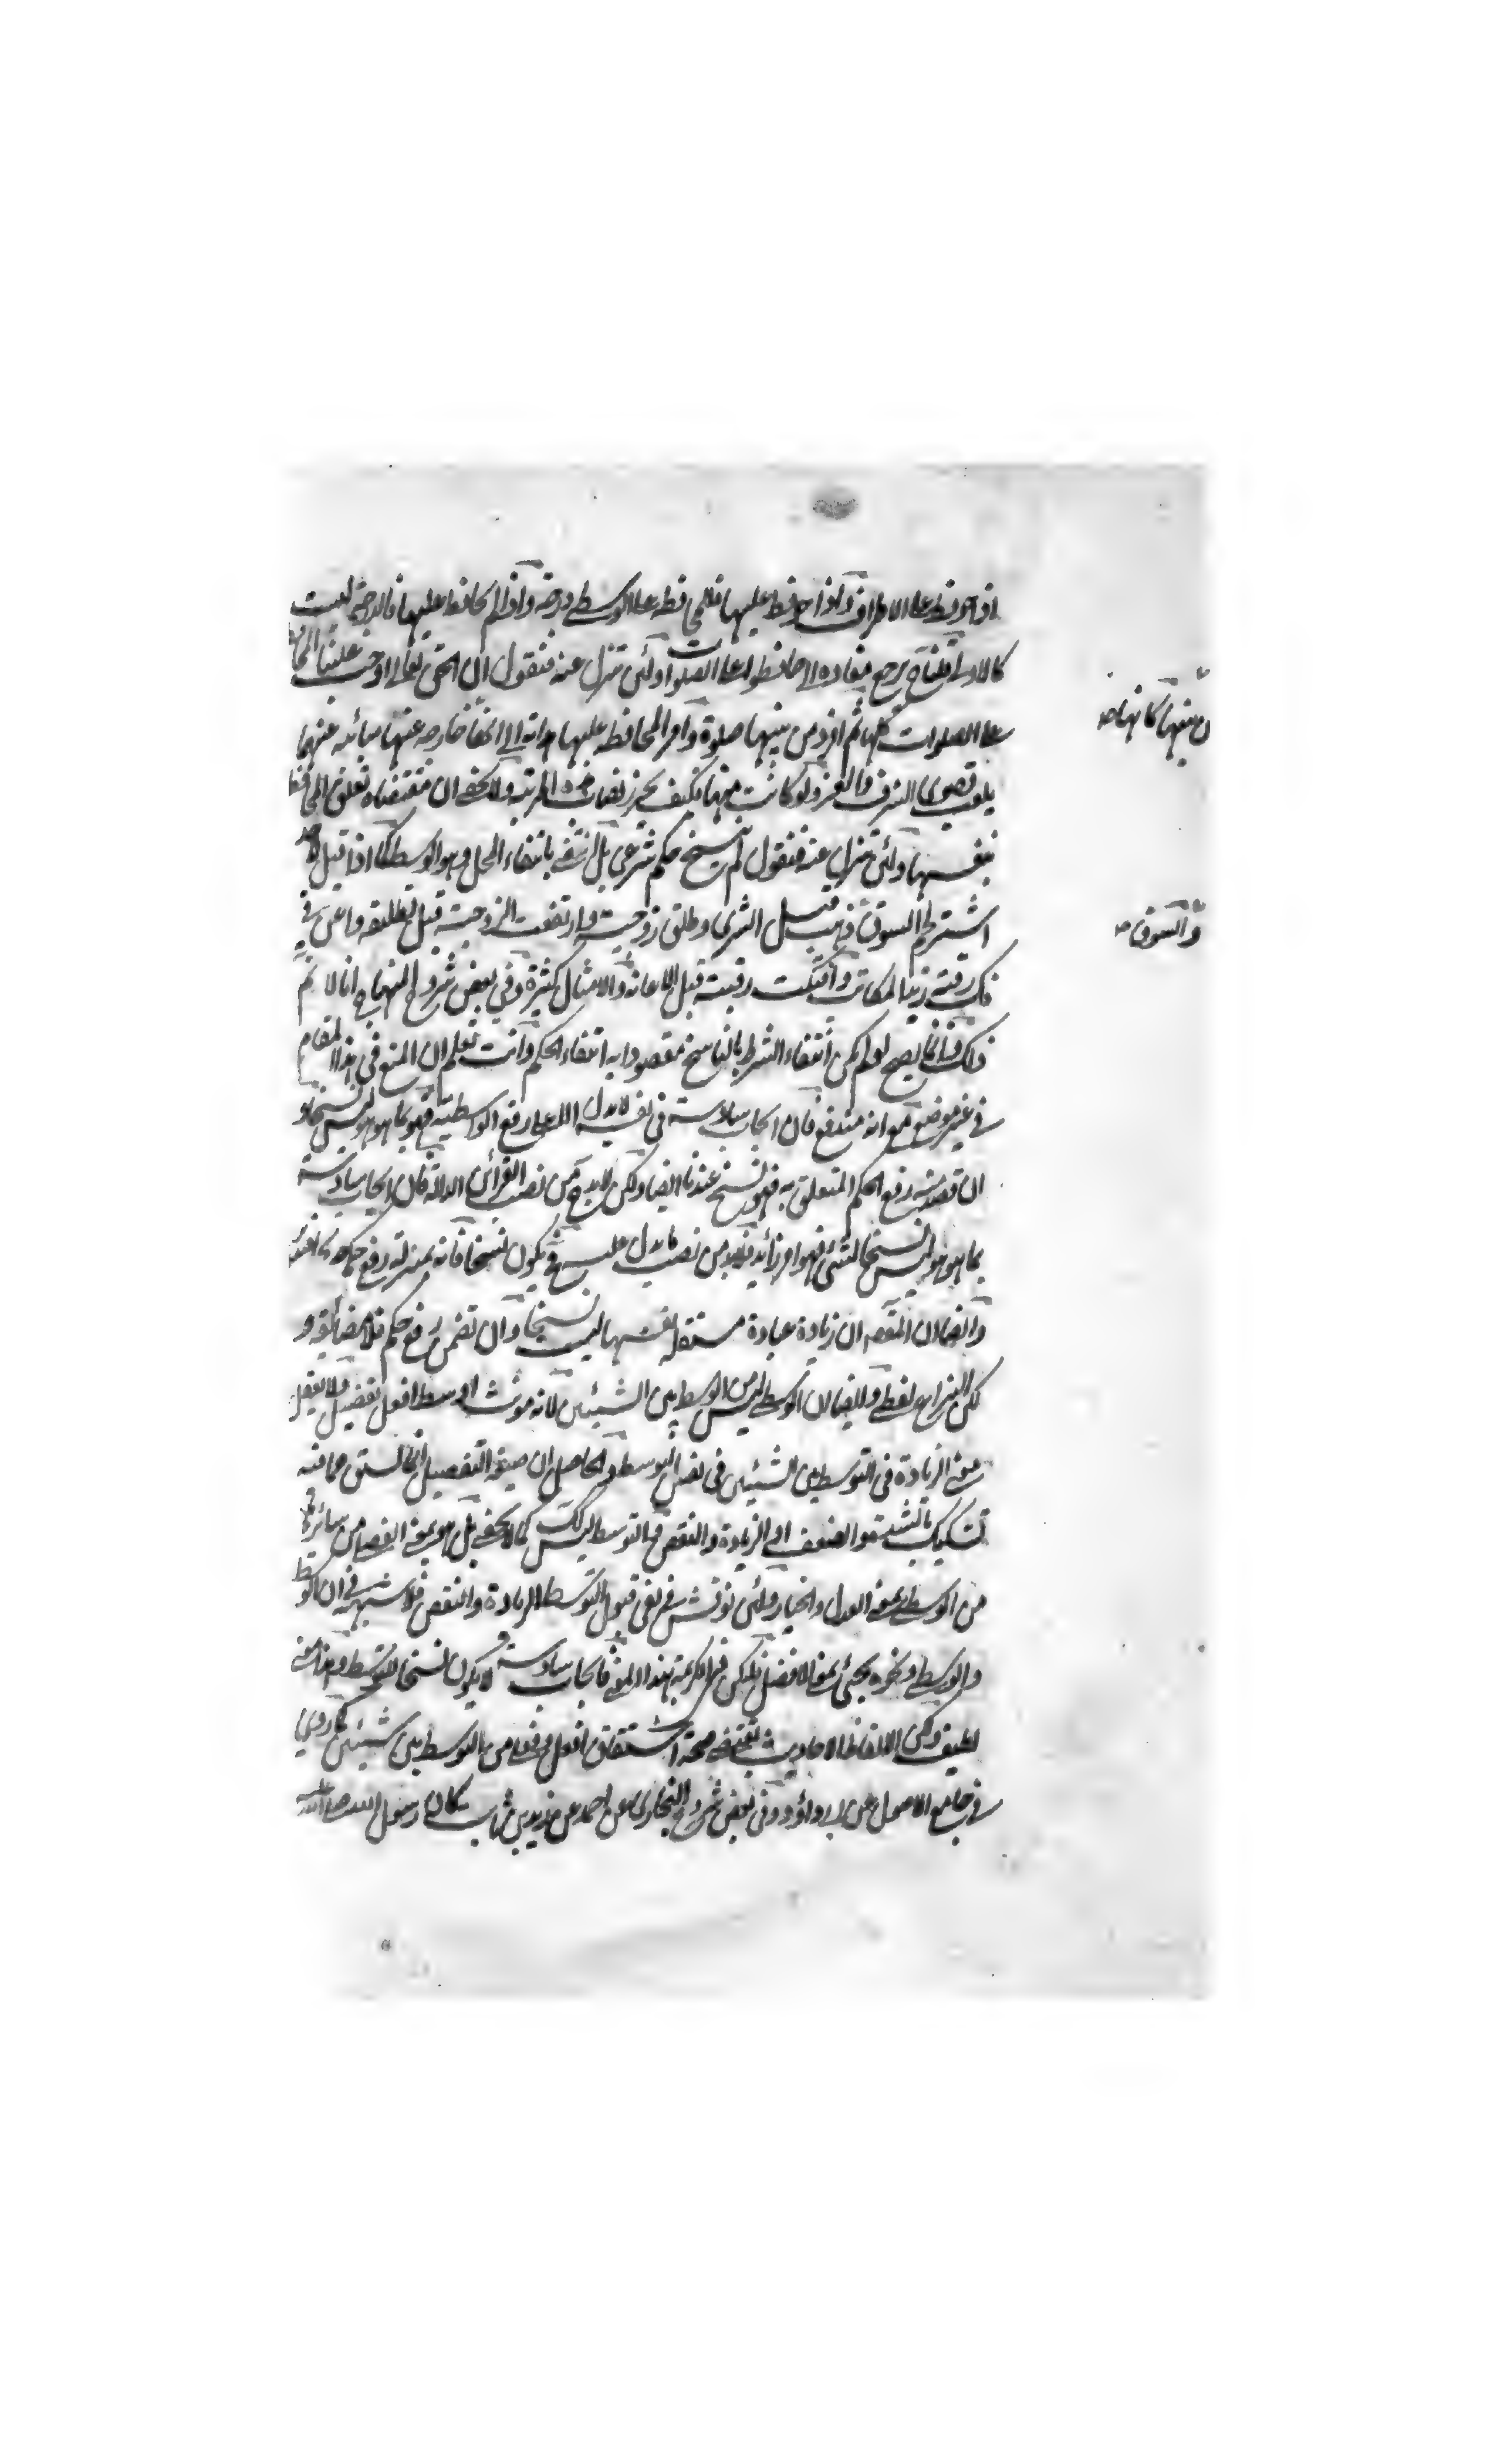 اذا حوفظ على الاطراف واذا حوفظ عليها فللمحافظة على الوسطى درجة واذا لم يحافظ عليها فالدرجة ليست
كالاولى قلنا ح يرجع مفاده الى حافظوا على الصلوات ولئن تنزل عنه فنقول ان الحق تعالى اوجب علينا المحافظة
على الصلوات كلها ثم افرد من بينها صلوة وامر بالمحافظة عليها هداية الى انها خارجة عنها مبائنة عنها
بلوغ قصوى الشرف والعز ولو كانت منها فكيف يحرز المرتبة ولا يخفى ان مقتضاه تعلق المحافظة
بنفسها ولئن تنزل عنه فنقول لم ينسخ حكم شرعي بل انتفى بانتفاء المحل وهو الوسط كما اذا قيل لاحد
اشتر لحم السوق فذهب قبل الشرى وطلق زوجته وارتفعت الزوجية قبل تطليقه واعن في
فك رقبة زيد المكاتب وافتكت رقبته قبل الاعانة والامثال كثيرة وفي بعض شروح المنهاج انا لا نم
ذلك وانما يصح لو لم يكن انتفاء الشرط بالناسخ مقصودا به انتفاء الحكم وانت تعلم ان المنع في هذا المقام
في غير موضع مع انه مندفع فان ايجاب سادسة في نفسه لا يدل الا على رفع الوسطية فهو بما هو هو ليس نسخا و
ان قصد منه رفع الحكم المتعلق به فهو نسخ عندنا ايضا ولكن لا بد ح من نصب القرائن الدالة فان ايجاب سادسة
بما هو هو ليس نسخا لشئ فهو امر زائد فلابد من نصب ما يدل عليه فح يكون نسخا فانه بمنزلة رفع حكم
وايضا ان المقصود ان زيادة عبادة مستقلة بنفسها ليست نسخا وان تضمن رفع حكم فلا مضائقة و
لكن النزاع لفظي وايضا ان الوسطى ليس من الوسط بين الشيئين لانه مؤنث اوسط افعل تفضيل ولا يعقل
معنى الزيادة في التوسط بين الشيئين في نفس التوسط والحاصل ان صيغة التفضيل انما يستق مما فيه
تشكيك بالشدة والضعف او الزيادة والنقص والتوسط ليس كك كما لا يخفى بل هو بمعنى الفضلى من سائرها
من الوسط بمعنى العدل والخيار ولئن نوقش في نفي قبول التوسط الزيادة والنقص فلا شبهة في ان الوسط
والوسطى ونحوه يجئ بمعنى الافضل فليكن في الكريمة بهذا المعنى فايجاب سادسة لا يكون نسخا للتوسط وهذا معنى
لطيف ولكن الالفاظ الاحاديث تقتضي صحة اشتقاق افعل وفعلى من التوسط بين شيئين كما روي
في جامع الاصول عن ابي داؤد وفي بعض شروح البخاري عن احمد عن زيد بن ثابت كان رسول الله صلى الله عليه
من بينها كانها صح
والسوق صح